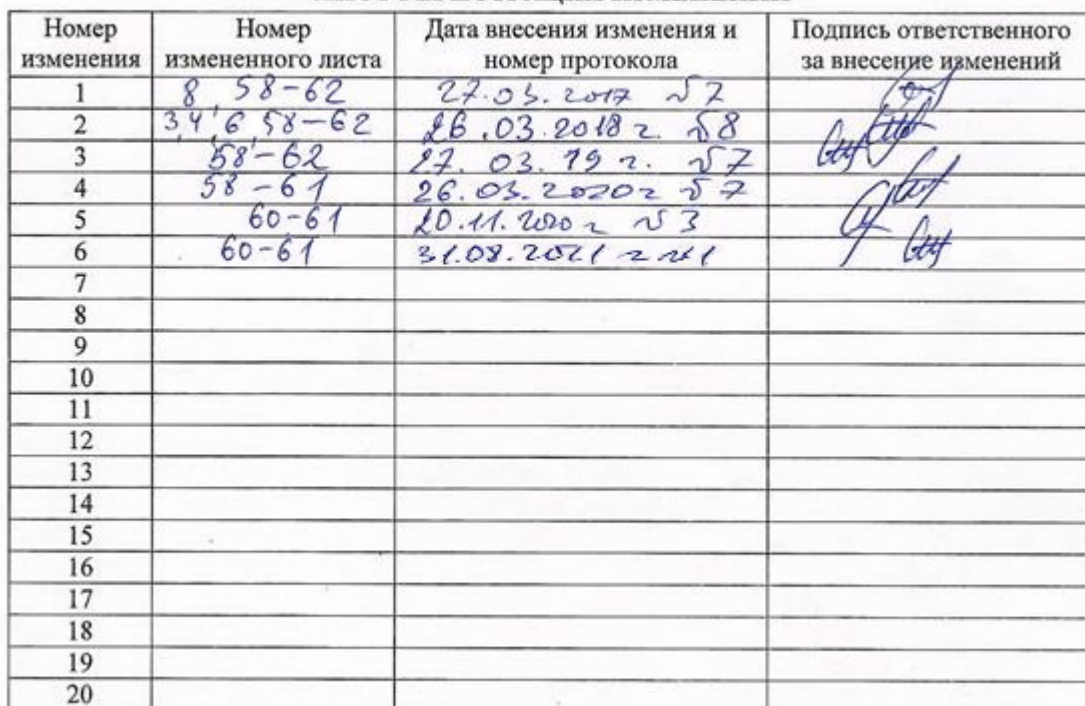 Номер изменения | Номер измененного листа | Дата внесения изменения и номер протокола | Подпись ответственного за внесение изменений
1 | 8, 58-62 | 27.03.2017 №7
2 | 3,4,6,58-62 | 26.03.2018 г. №8
3 | 58-62 | 27.03.19 г. №7
4 | 58-61 | 26.03.2020 г №7
5 | 60-61 | 20.11.2020 г №3
6 | 60-61 | 31.08.2021 г №1
7
8
9
10
11
12
13
14
15
16
17
18
19
20